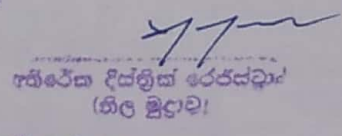 අතිරේක දිස්ත්‍රික් රෙජිස්ට්‍රාර්
(නිල මුද්‍රාව)